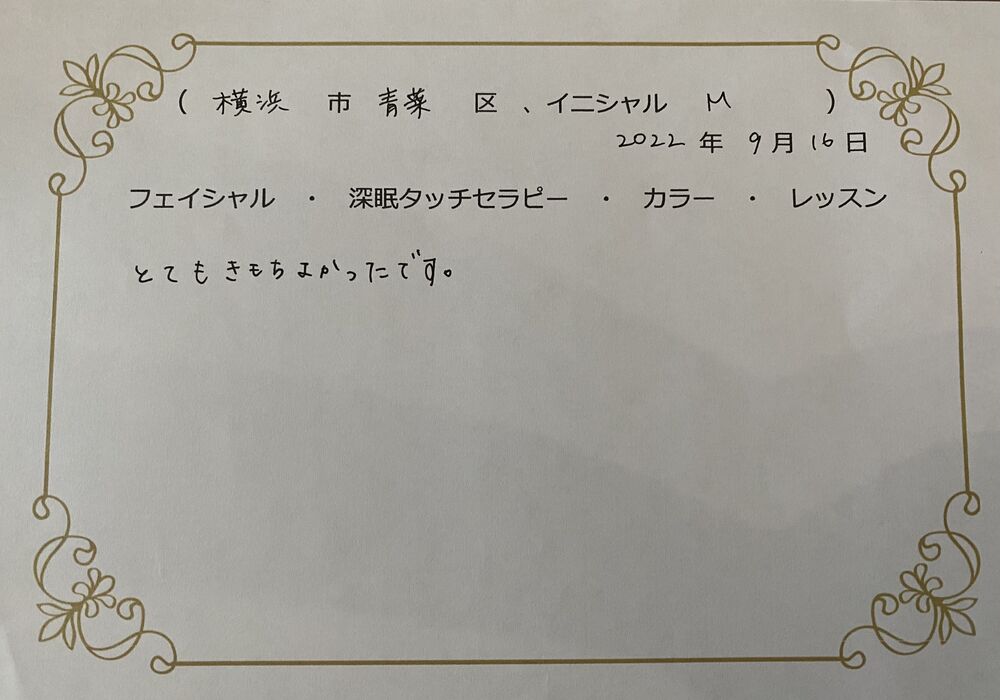 ( 横浜 市 青葉 区 、イニシャル M )
2022 年 9 月 16 日
フェイシャル ・ 深眠タッチセラピー ・ カラー ・ レッスン
とてもきもちよかったです。